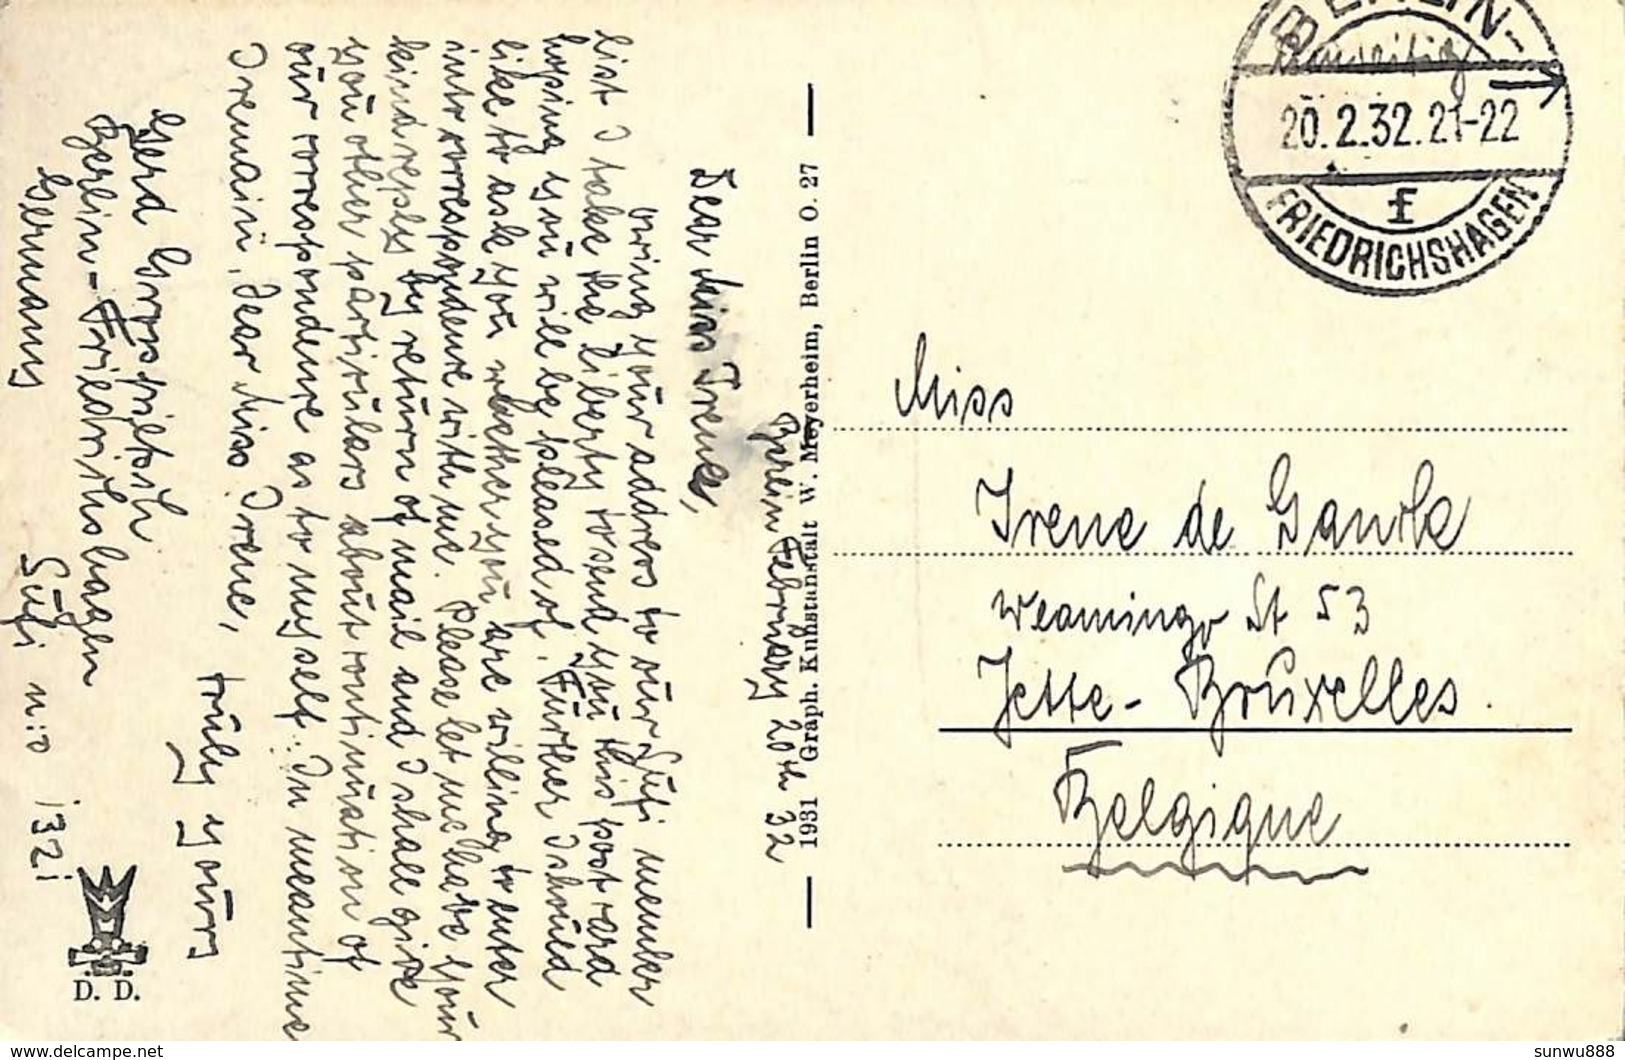 BERLIN-
20.2.32.21-22
f
FRIEDRICHSHAGEN
Berlin February 20th 32
Dear Miss Irene,
owing your address to our Sufi member
list I take the liberty to send you this post card
hoping you will be pleased of. Further I should
like to ask you whether you are willing to enter
into correspondence with me. Please let me have your
kind reply by return of mail and I shall give
you other particulars about continuation of
our correspondence as to my self. In meantime
I remain, dear Miss Irene,
truly yours
Gerd
Berlin-Friedrichshagen
Germany
Sufi n:o 1321
D. D.
1931 Graph. Kunstanstalt W. Meyerheim, Berlin O. 27
Miss
Irene de
St 53
Jette-Bruxelles.
Belgique
delcampe.net
sunwu888